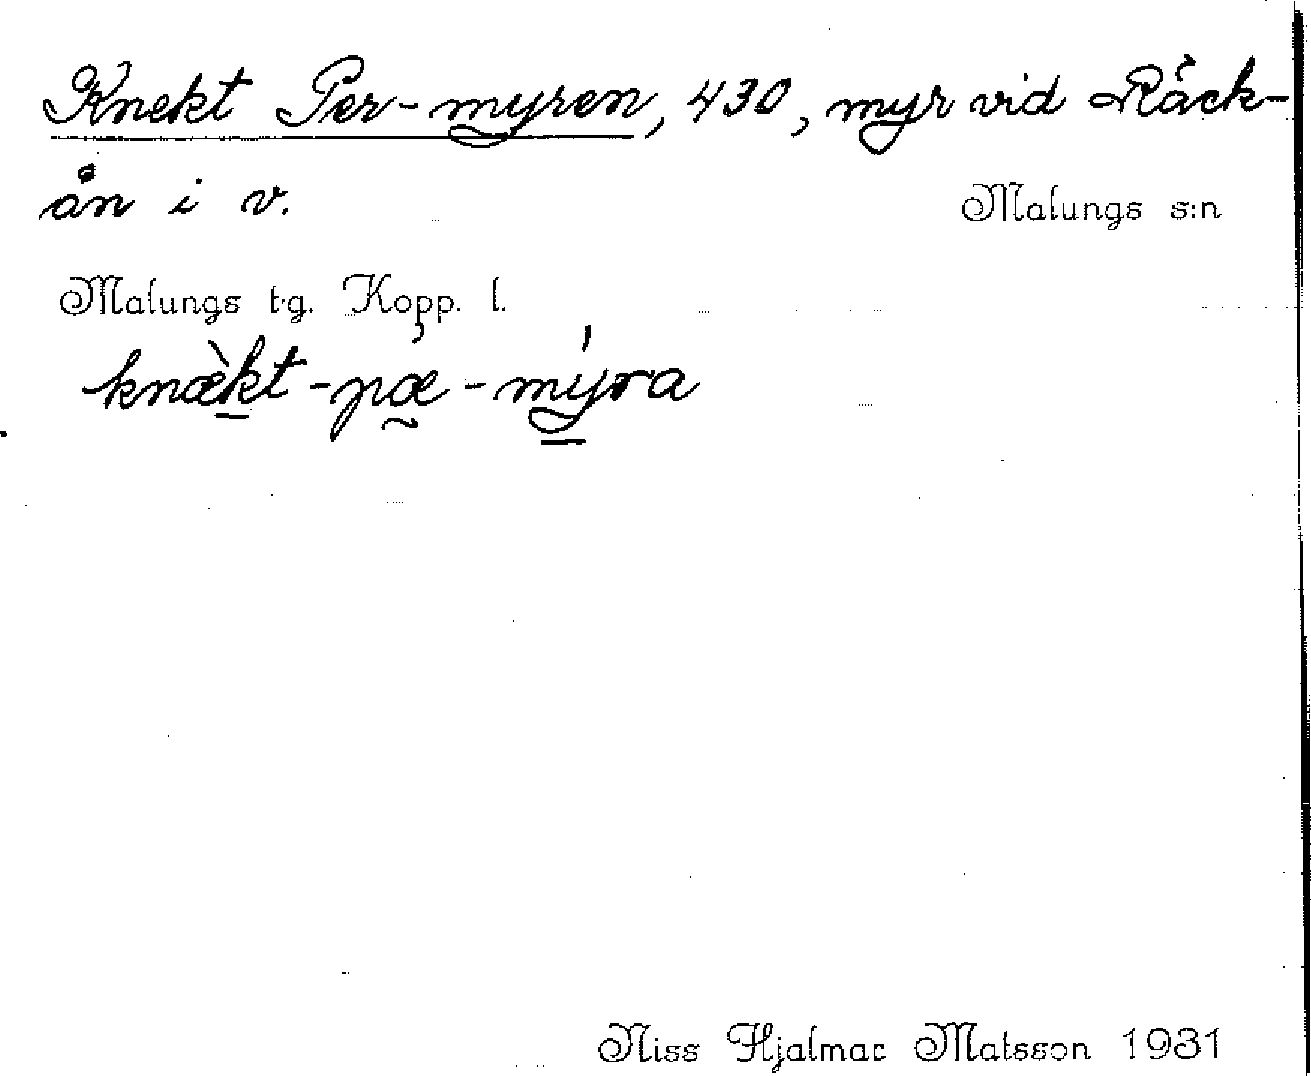 Knekt Per-myren, 430, myr vid Råck-
ån i v.
Malungs s:n
Malungs t.g. Kopp. l.
knæ̀kt-pæ-mýra
Niss Hjalmar Matsson 1931